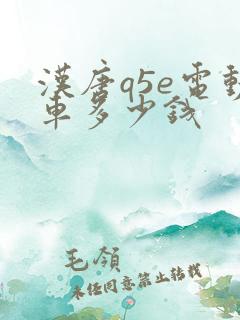 漢唐q5e電動
車多少錢
毛領
未任同意禁止转载